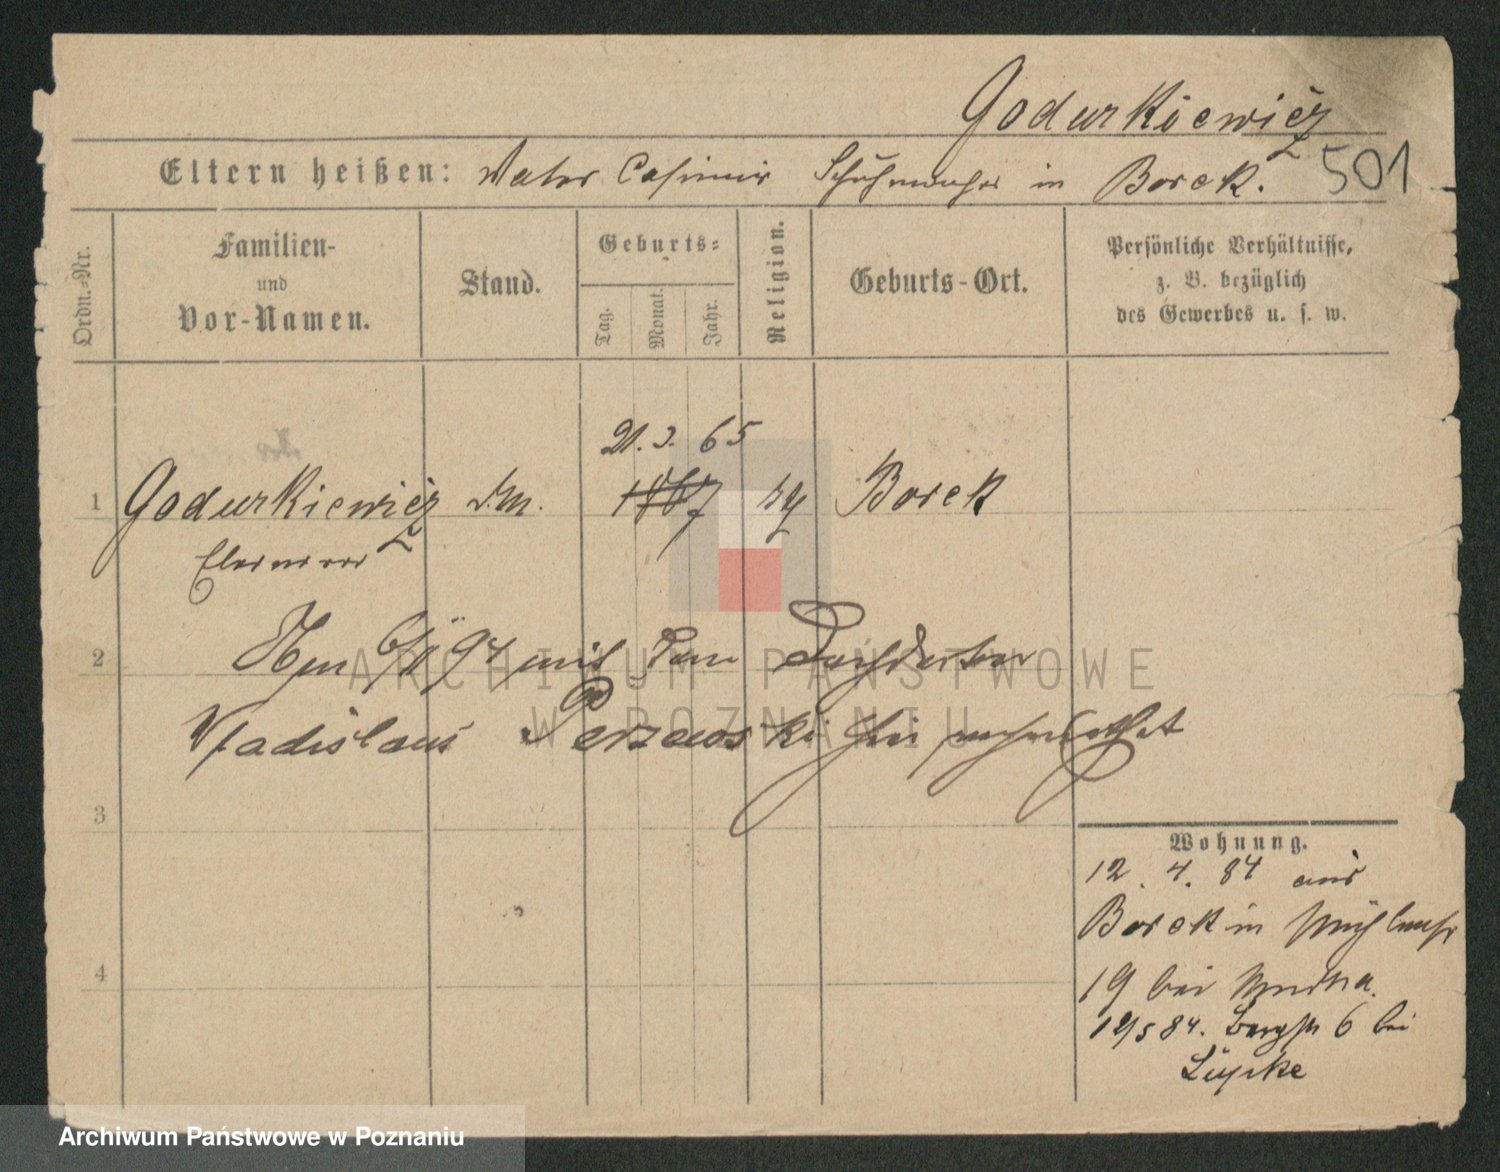 Godurkiewicz
501
Eltern heißen: Vater Casimir Schuhmacher in Borek.
Ordn.-Nr.
Familien-
und
Vor-Namen.
Stand.
Geburts-
Tag.
Monat.
Jahr.
Religion.
Geburts-Ort.
Persönliche Verhältnisse,
z. B. bezüglich
des Gewerbes u. s. w.
21. 3. 65
1 Godurkiewicz 1867 Borek
2 94 mit dem
Vladislaus hier verheirathet
3
4
Wohnung.
12. 4. 84 aus
Borek in
19 bei
12/5 84. Bergstr 6 bei
Lüpke
ARCHIWUM PAŃSTWOWE
W POZNANIU
Archiwum Państwowe w Poznaniu